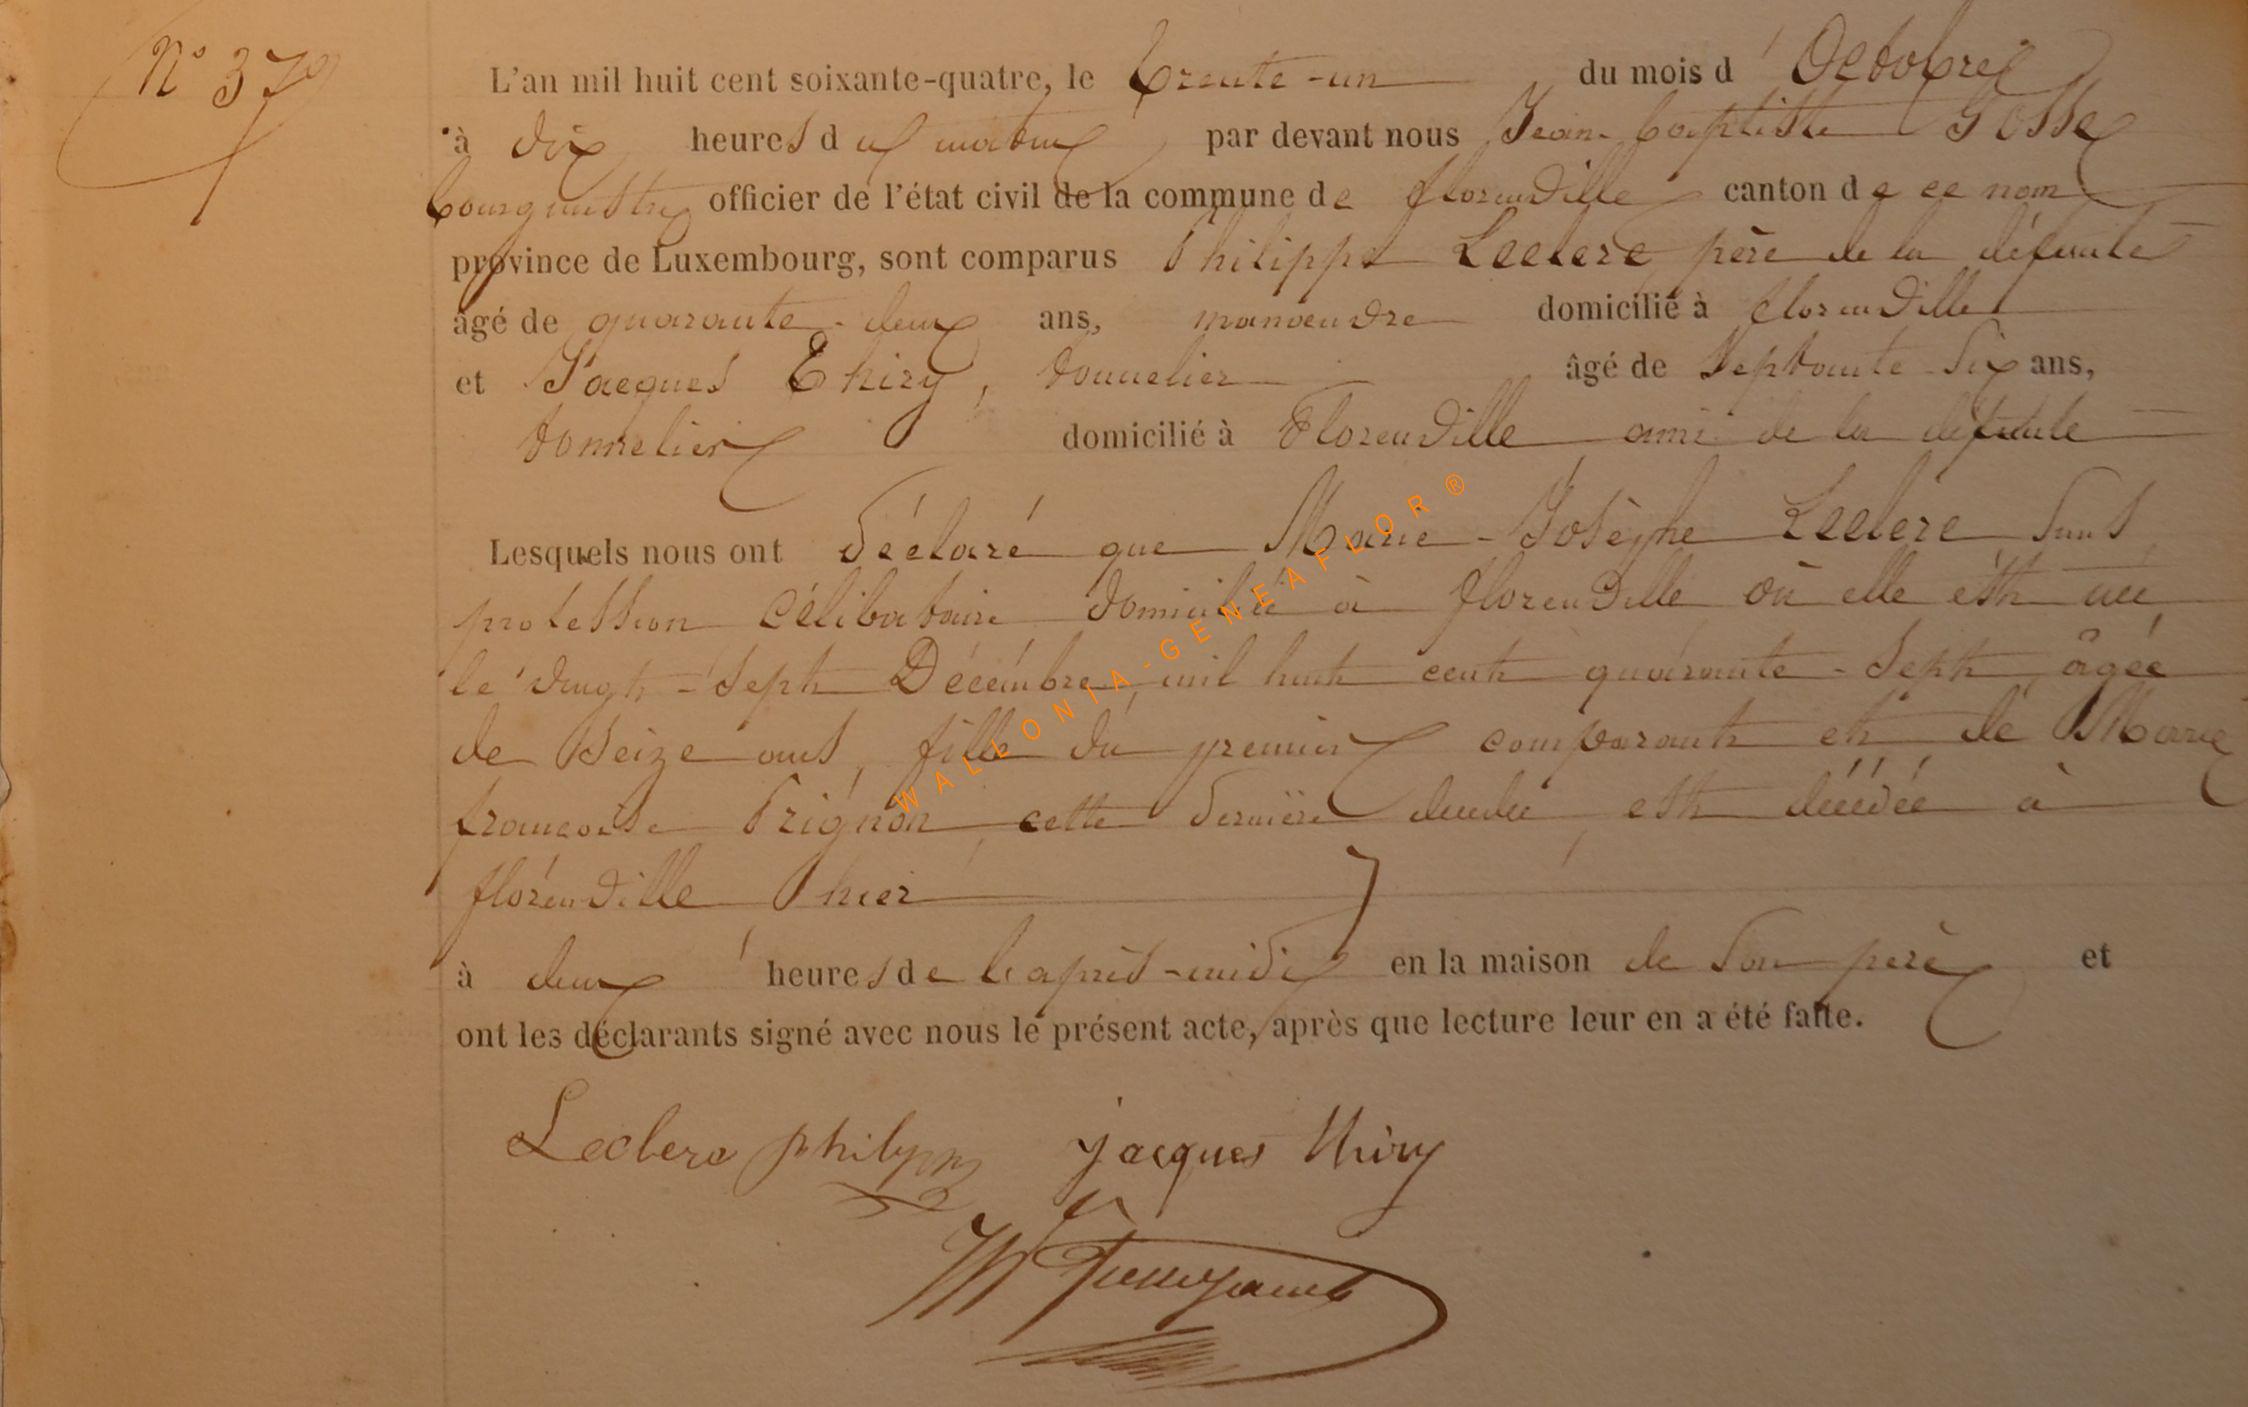 N° 37
L'an mil huit cent soixante-quatre, le trente-un du mois d'Octobre
à dix heures du matin par devant nous Jean-baptiste Gosse
bourgmestre officier de l'état civil de la commune de florenville canton de ce nom
province de Luxembourg, sont comparus Philippe Leclere père de la défunte
âgé de quarante-deux ans, manoeuvre domicilié à florenville
et Jacques Thiry, tonnelier âgé de septante-six ans,
tonnelier domicilié à Florenville ami de la défunte
Lesquels nous ont déclaré que Marie-Josèphe Leclere sans
profession célibataire domiciliée à florenville où elle est née
le vingt-sept Décembre mil huit cent quarante-sept, âgée
de seize ans, fille du premier comparant et de Marie
françoise Prignon, cette dernière décédée, est décédée à
florenville hier
à deux heures de l'après-midi en la maison de son père et
ont les déclarants signé avec nous le présent acte, après que lecture leur en a été faite.
Leclere philippe jacques thiry
WALLONIA-GENEAFLOR®